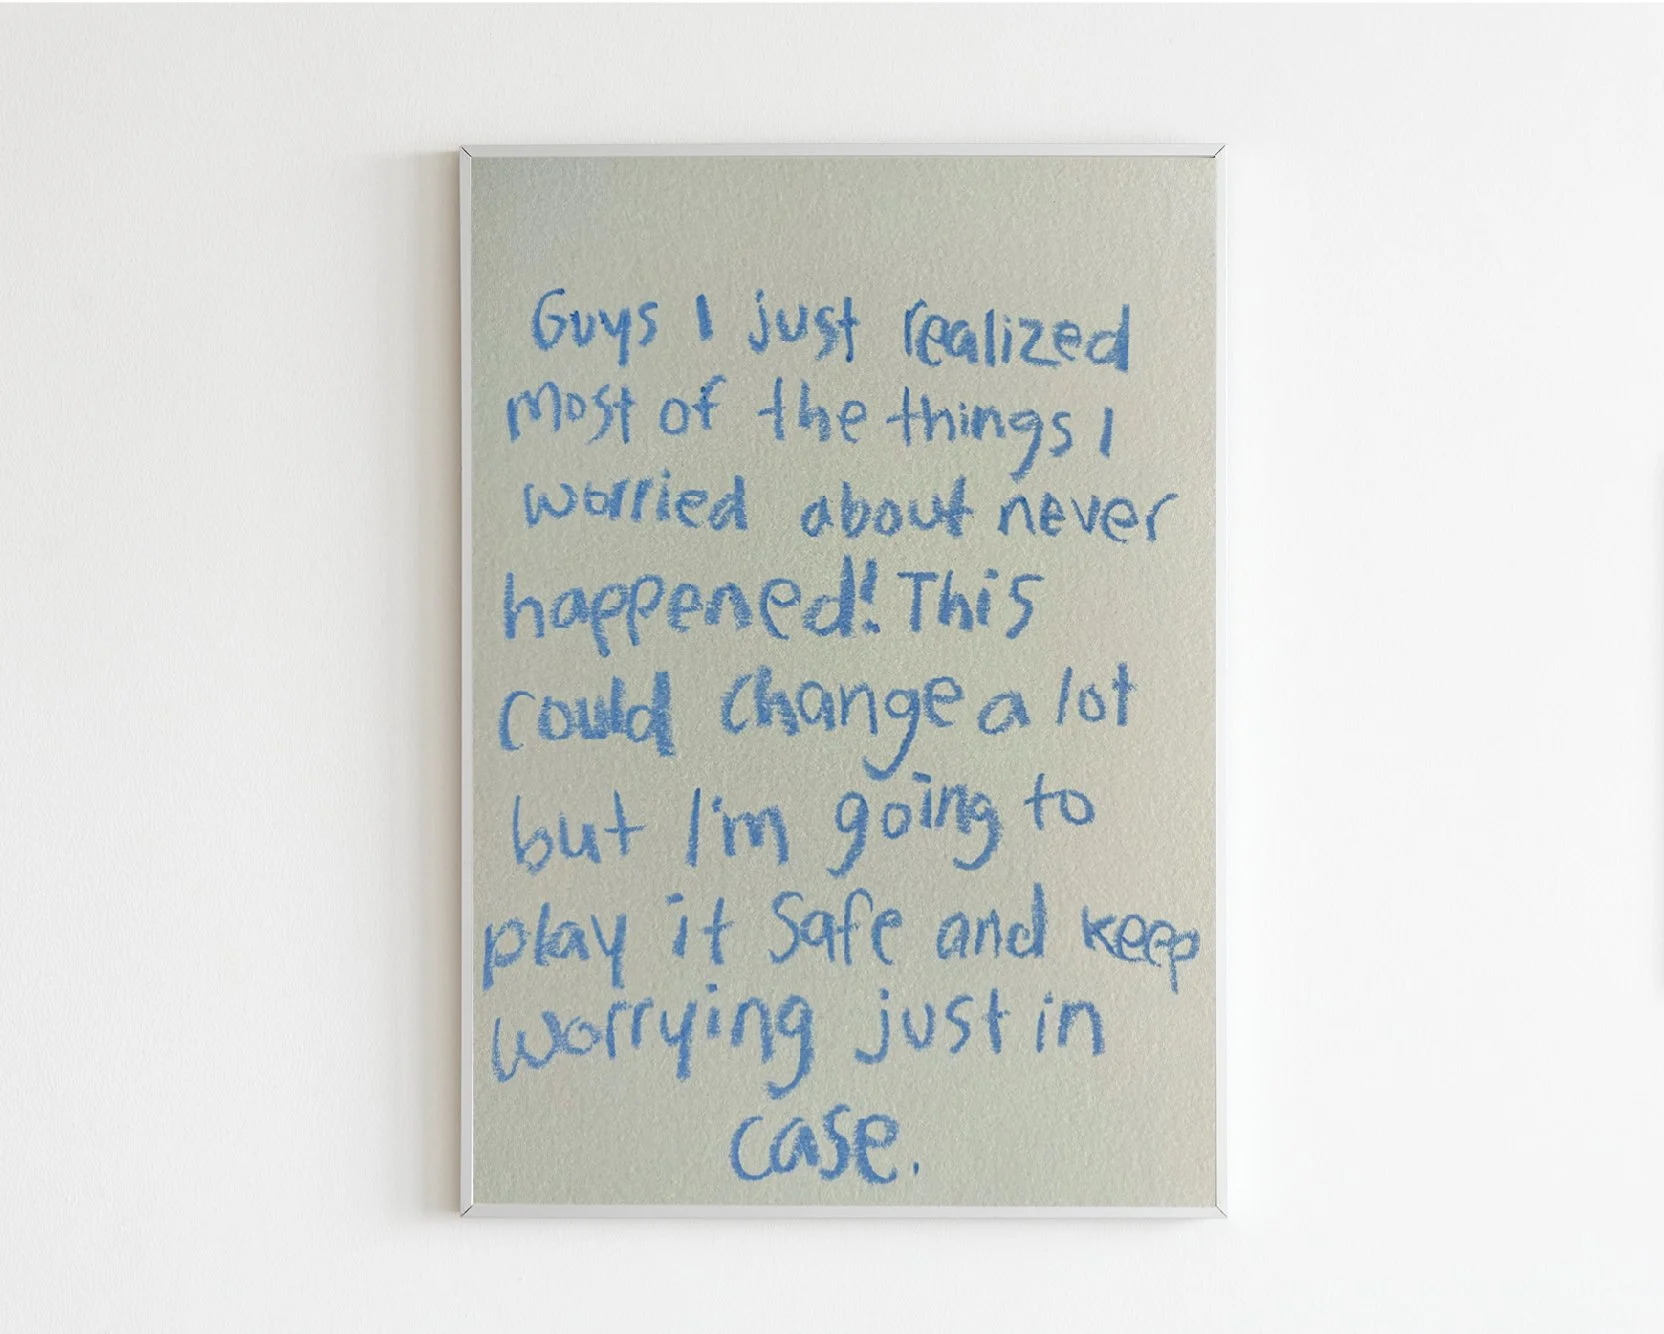 Guys I just realized
most of the things I
worried about never
happened! This
could change a lot
but I'm going to
play it safe and keep
worrying just in
case.